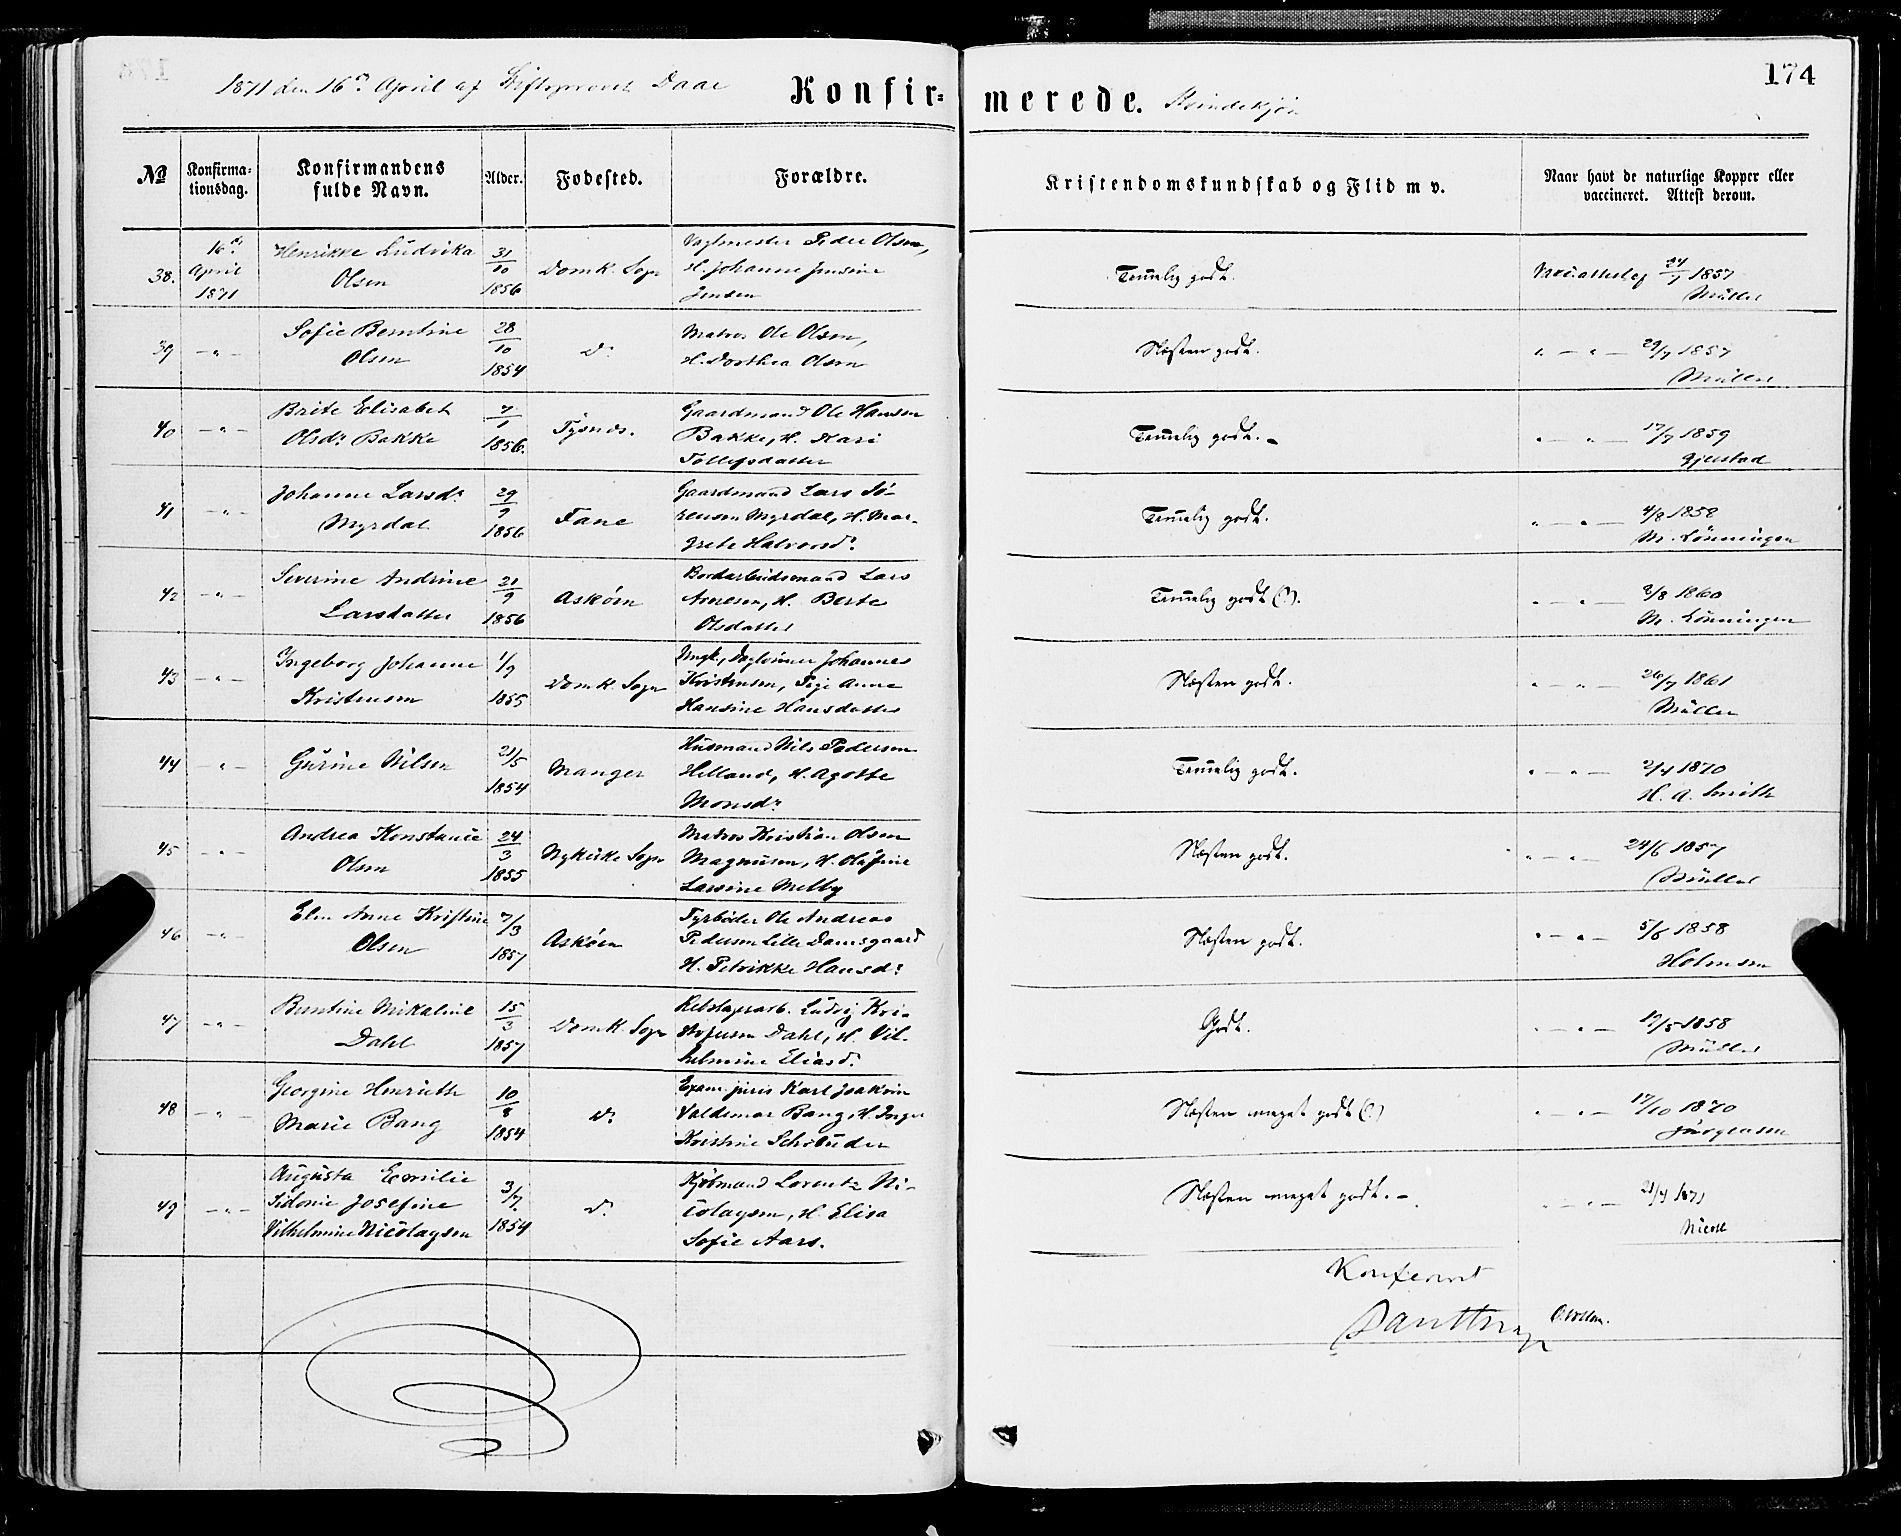 1871 den 16de April af Stiftsprovst Daae
Konfir-
merede. Kvindekjøn
174
No
Konfirma-
tionsdag.
Konfirmandens
fulde Navn.
Alder.
Fødested.
Forældre.
Kristendomskundskab og Flid m v.
Naar havt de naturlige Kopper eller
vaccineret. Attest derom.
38.
16de
April
1871
Henrikke Ludvika
Olsen
31/10
1856
Domk. Sogn
Vagtmester Peder Olsen,
H. Johanne Jensine
Jensen
Temmelig godt.
1857
Müller
39
Sofie Berntine
Olsen
28/10
1854
do
Matros Ole Olsen,
H. Dorthea Olsen
Næsten godt.
29/7 1857
Müller
40
Brite Elisabet
Olsdr Bakke
7/1
1856.
Tysnes.
Gaardmand Ole Hansen
Bakke, H. Kari
Tollefsdatter
Temmelig godt. -
17/7 1859
Gjerstad
41
Johanne Larsdr
Myrdal
29/9
1856
Fane
Gaardmand Lars Sø-
rensen Myrdal, H. Mar-
grete Halvorsdr
Temmelig godt.
4/8 1858
M. Lønningen
42
Severine Andrine
Larsdatter
21/9
1856
Askøen
Bordarbeidsmand Lars
Arnesen, H. Berte
Olsdatter
Temmelig godt (?).
2/8 1860
M. Lønningen
43
Ingeborg Johanne
Kristensen
1/9
1855
Domk. Sogn
Ungk., Dagløner Johannes
Kristensen, Pige Anne
Hansine Hansdatter
Næsten godt.
26/7 1861
Müller
44
Gurine Nilsen
21/5
1854
Manger
Husmand Nils Pedersen
Helland, H. Agothe
Monsdr
Temmelig godt.
2/4 1870
H. A. Smith
45
Andrea Konstance
Olsen
24/3
1855
Nykirke Sogn
Matros Kristian Olsen
Magnusen, H. Olufine
Larsine Melby
Næsten godt.
24/6 1857
Müller
46
Elen Anne Kristine
Olsen
7/3
1857
Askøen
Fyrbøder Ole Andreas
Pedersen Lille Damsgaard
H. Petrikke Hansdr
Næsten godt.
5/6 1858
Holmsen
47
Berntine Mikaline
Dahl
15/3
1857
Domk. Sogn
Rebslagerarb. Ludvig Kri-
stofersen Dahl, H. Vil-
helmine Eliasdr
Godt.
19/5 1858
Müller
48
Georgine Henriette
Marie Bang
10/8
1854
do
Exam. juris Karl Joakim
Valdemar Bang, H. Inger
Kristine Schrøuder
Næsten meget godt (?)
17/10 1870
Jürgensen
49
Augusta Emilie
Sidonie Josefine
Vilhelmine Nicolaysen
3/7
1854
do
Kjøbmand Lorentz Ni-
colaysen, H. Elisa
Sofie Aars.
Næsten meget godt. -
21/4 1871
Konfereret